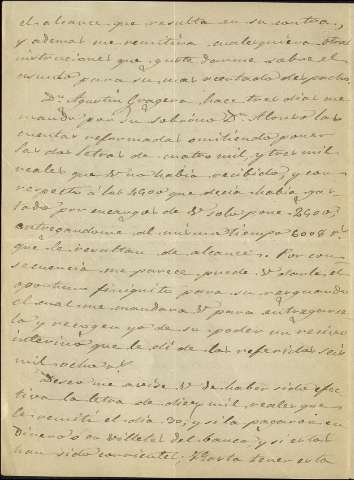 el alcance que resulta en su contra,
y ademas me remitira cualesquiera otras
instrucciones que guste darme sobre el
asunto para su mas acertado despacho.
Dn. Agustin Gragera hace tres dias me
mando por su sobrino Dn. Alonso las
cuentas reformadas omitiendo poner
las dos letras de cuatro mil, y tres mil
reales que V. no habia recibido, y con
respecto a los 4400 que decia habia gas-
tado por encargos de V. solo pone 2400,
entregandome al mismo tiempo 6008 rs
que le resultan de alcance. Por con-
secuencia me parece puede V. darle el
oportuno finiquito para su resguardo
el cual me mandara V. para entregarse-
lo y recoger yo de su poder un recibo
interino que le di de los referidos seis
mil ocho rs.
Deseo me avise V. de haber sido efec-
tiva la letra de diez mil reales que
le remiti el dia 30, y si la pagaron en
Dinero o en villetes del banco, y si estos
han sido corrientes. Hasta tener esta